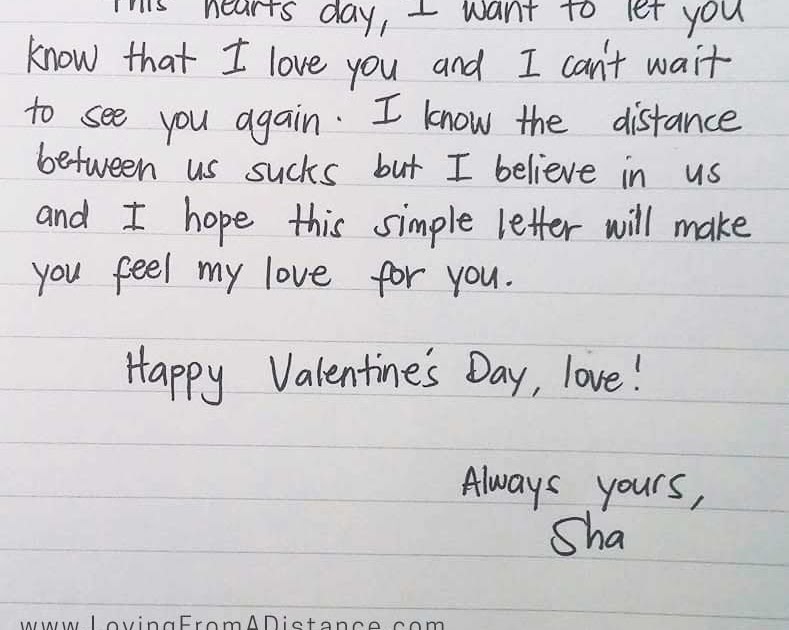 This hearts day, I want to let you
know that I love you and I can't wait
to see you again. I know the distance
between us sucks but I believe in us
and I hope this simple letter will make
you feel my love for you.
Happy Valentine's Day, love!
Always yours,
Sha
www.LovingFromADistance.com